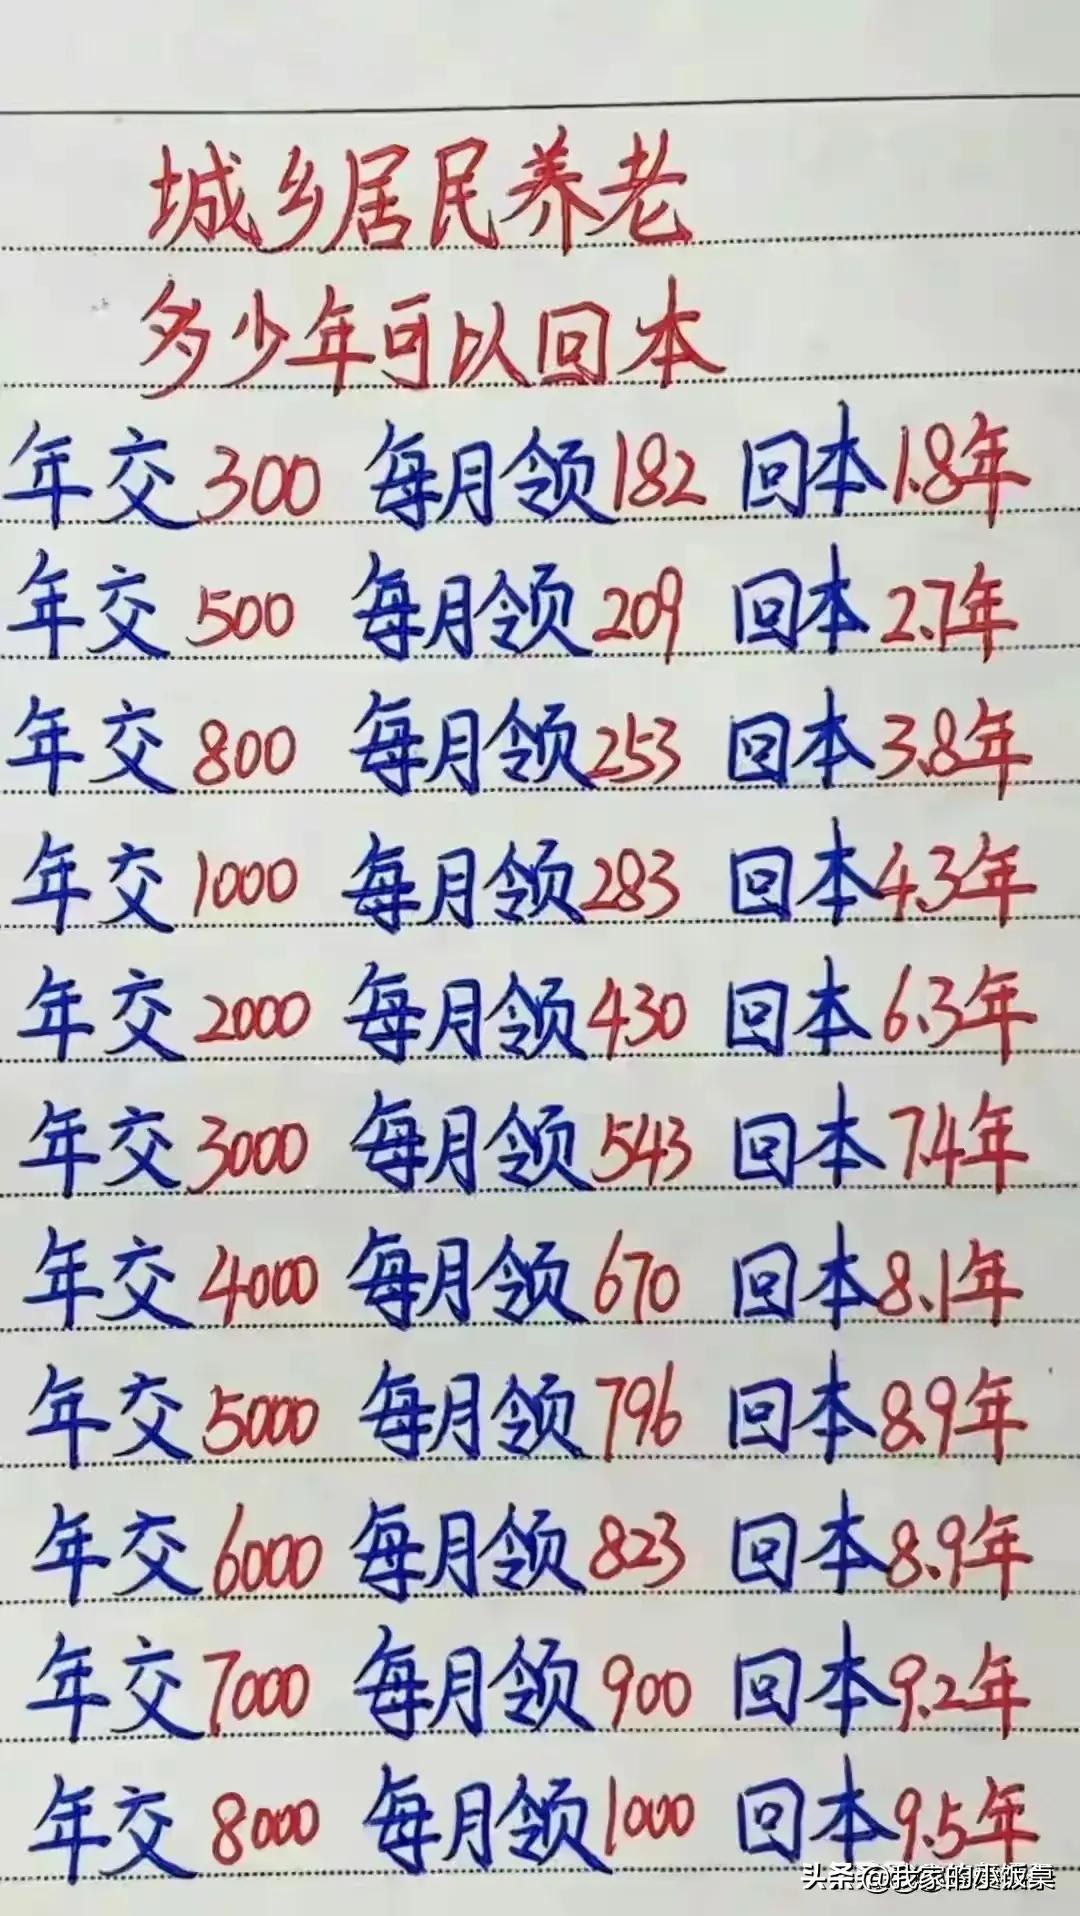 城乡居民养老
多少年可以回本
年交300 每月领182 回本1.8年
年交500 每月领209 回本2.7年
年交800 每月领253 回本3.8年
年交1000 每月领283 回本4.3年
年交2000 每月领430 回本6.3年
年交3000 每月领543 回本7.4年
年交4000 每月领670 回本8.1年
年交5000 每月领796 回本8.9年
年交6000 每月领823 回本8.9年
年交7000 每月领900 回本9.2年
年交8000 每月领1000 回本9.5年
头条@我家的小饭桌